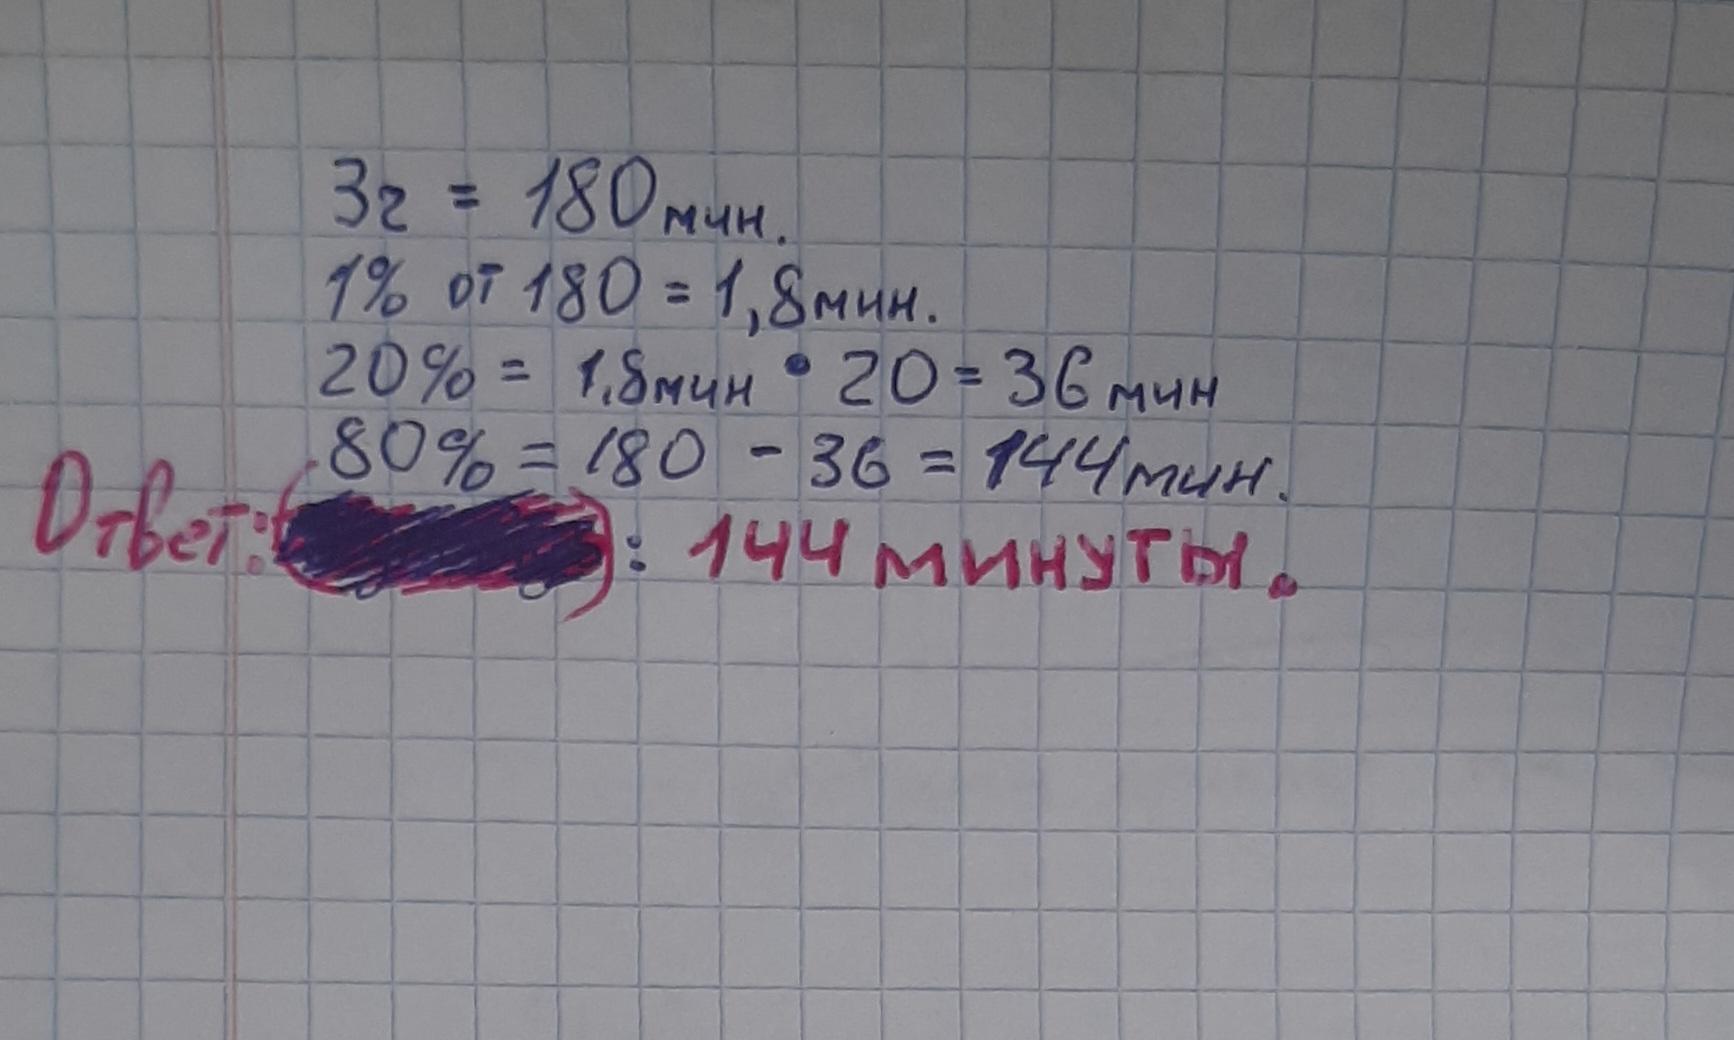 3г = 180мин.
1% от 180 = 1,8мин.
20% = 1.8мин • 20 = 36мин
80% = 180 - 36 = 144мин.
Ответ: : 144 минуты.